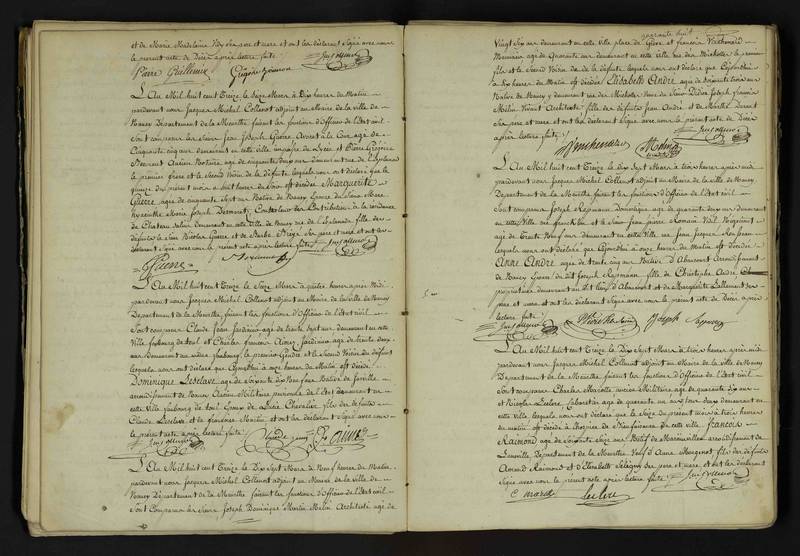 et de Marie Madelaine ses pere et mere et ont les déclarans signé avec nous
le présent acte de Décès après lecture faite
Pierre Guillemin
L'An Mil huit cent Treize le Seize Mars à Dix heures du Matin
pardevant nous Jacques Michel Collenot adjoint au Maire de la ville de
Nancy Département de la Meurthe faisant les fonctions d'Officier de l'état civil
sont comparus les Sieurs Jean Joseph Guerre Avocat à la Cour agé de
Cinquante cinq ans demeurant en cette ville impasse du Lycée et Pierre
ancien Notaire agé de cinquante deux ans demeurant rue de l'Esplanade
le premier frère et le second voisin de la défunte lesquels nous ont déclaré que le
quinze du présent mois à huit heures du soir est décédée Marguerite
Guerre, agée de cinquante sept ans Native de Nancy Epouse du Sieur
hyacinthe Marie Joseph Controleur des Contributions à la résidence
de Chateau Salins demeurant en cette ville de Nancy rue de l'Esplanade fille des
défunts le Sieur Nicolas Guerre et de Barbe ses pere et mere et ont les
déclarans signé avec nous le présent acte après lecture faite
Guerre
L'An Mil huit cent Treize le Seize Mars à quatre heures après Midi
pardevant nous Jacques Michel Collenot adjoint au Maire de la ville de Nancy
Département de la Meurthe faisant les fonctions d'Officier de l'état civil
sont comparus Claude Jean Jardinier agé de trente sept ans demeurant en cette
ville faubourg de toul et Charles francois Aimez Jardinier agé de trente deux
ans Demeurant au même faubourg, le premier Gendre et le Second Voisin du défunt
lesquels nous ont déclaré que Cejourdhui à onze heures du Matin est décédé
Dominique Leclerc agé de Soixante Dix Neuf ans Natif de
arrondissement de Nancy Ancien Militaire pensionné de l'état demeurant en
cette ville faubourg de toul Epoux de Lucie Chevalier fils des défunts
Claude Leclerc et de francoise Martin et ont les déclarans signé avec nous
le présent acte après lecture faite
L'An Mil huit cent Treize le Dix Sept Mars à Neuf heures du Matin
pardevant nous Jacques Michel Collenot adjoint au Maire de la ville de
Nancy Département de la Meurthe faisant les fonctions d'Officier de l'état civil
sont Comparus les Sieurs Joseph Dominique Martin Melin Architecte agé de
quarante huit
Vingt Six ans demeurant en cette ville place de Grève et francois
agé de Quarante ans demeurant en cette ville rue des Michottes le premier
fils et le Second Voisin de la défunte lesquels nous ont déclaré que Cejourdhui
à heures du Matin est décédée Elisabeth André agée de Soixante trois ans
Native de Nancy y demeurant rue des Michottes Veuve du Sieur Didier Joseph francois
Melin Vivant Architecte fille des défunts Jean André et de Marthe
ses pere et mere et ont les déclarans signé avec nous le présent acte de Décès
après lecture faite
L'An Mil huit cent Treize le Dix Sept Mars à trois heures après midi
pardevant nous Jacques Michel Collenot adjoint au Maire de la ville de Nancy
Département de la Meurthe faisant les fonctions d'Officier de l'état civil
sont comparus Joseph agé de quarante deux ans demeurant
en cette ville et le Sieur Jean Pierre Romain Négociant
agé de Trente Neuf ans Demeurant en cette ville rue Jean Jacques Rousseau
lesquels nous ont déclaré que Cejourdhui à onze heures du Matin est Décédée
Anne André agée de trente cinq ans Native d'Abaucourt Arrondissement
de Nancy Epouse du dit Joseph fille de Christophe André,
proprietaire demeurant au dit lieu d'Abaucourt et de Marguerite Lallement ses
pere et mere et ont les déclarans signé avec nous le présent acte de Décès après
lecture faite
Joseph
L'An Mil huit cent Treize le Dix Sept Mars à trois heures après midi
pardevant nous Jacques Michel Collenot adjoint au Maire de la ville de Nancy
Département de la Meurthe faisant les fonctions d'Officier de l'état civil
sont comparus Charles Marcotte ancien Militaire agé de quarante dix ans
et Nicolas Leclere Cabaretier agé de quarante un ans tous deux demeurant en
cette ville lesquels nous ont déclaré que le Seize du présent mois à trois heures
du matin est décédé à l'hospice de Bienfaisance de cette ville, francois
Raimond agé de Soixante Seize ans Natif de arrondissement de
Lunéville Département de la Meurthe Veuf d'Anne Mougenot fils des défunts
Raimond et d'Elisabeth ses pere et mere, et ont les déclarans
signé avec nous le présent acte de Décès après lecture faite
leclere